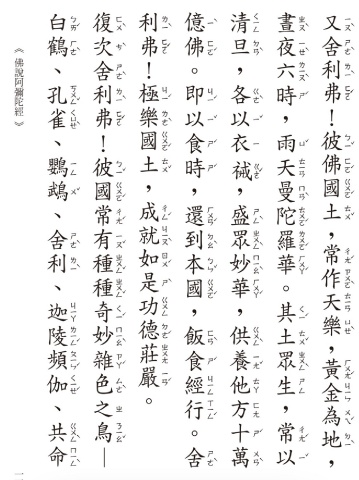 又舍利弗！彼佛國土，常作天樂，黃金為地，
晝夜六時，雨天曼陀羅華。其土眾生，常以
清旦，各以衣祴，盛眾妙華，供養他方十萬
億佛。即以食時，還到本國，飯食經行。舍
利弗！極樂國土，成就如是功德莊嚴。
復次舍利弗！彼國常有種種奇妙雜色之鳥—
白鶴、孔雀、鸚鵡、舍利、迦陵頻伽、共命
《佛說阿彌陀經》